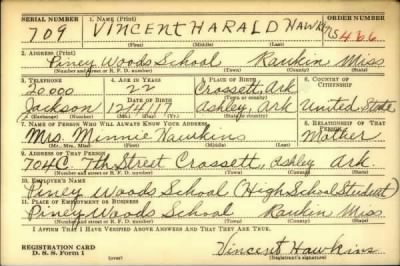 SERIAL NUMBER 1. NAME (Print) ORDER NUMBER
709 VINCENT HARALD Hawkins 466
(First) (Middle) (Last)
2. ADDRESS (Print)
Piney Woods School Rankin Miss
(Number and street or R. F. D. number) (Town) (County) (State)
3. TELEPHONE 4. AGE IN YEARS 5. PLACE OF BIRTH 6. COUNTRY OF CITIZENSHIP
20000 22 Crossett, Ark
DATE OF BIRTH
Jackson Ashley, Ark United State
7. NAME OF PERSON WHO WILL ALWAYS KNOW YOUR ADDRESS 8. RELATIONSHIP OF THAT PERSON
Mrs. Minnie Hawkins Mother
(Mr., Mrs., Miss) (First) (Middle) (Last)
9. ADDRESS OF THAT PERSON
704 C. 7th Street Crossett, Ashley Ark.
(Number and street or R. F. D. number) (Town) (County) (State)
10. EMPLOYER'S NAME
Piney Woods School (High School Student)
11. PLACE OF EMPLOYMENT OR BUSINESS
Piney Woods School Rankin Miss.
(Number and street or R. F. D. number) (Town) (County) (State)
I AFFIRM THAT I HAVE VERIFIED ABOVE ANSWERS AND THAT THEY ARE TRUE.
REGISTRATION CARD
D. S. S. Form 1 (over) Vincent Hawkins
(Registrant's signature)